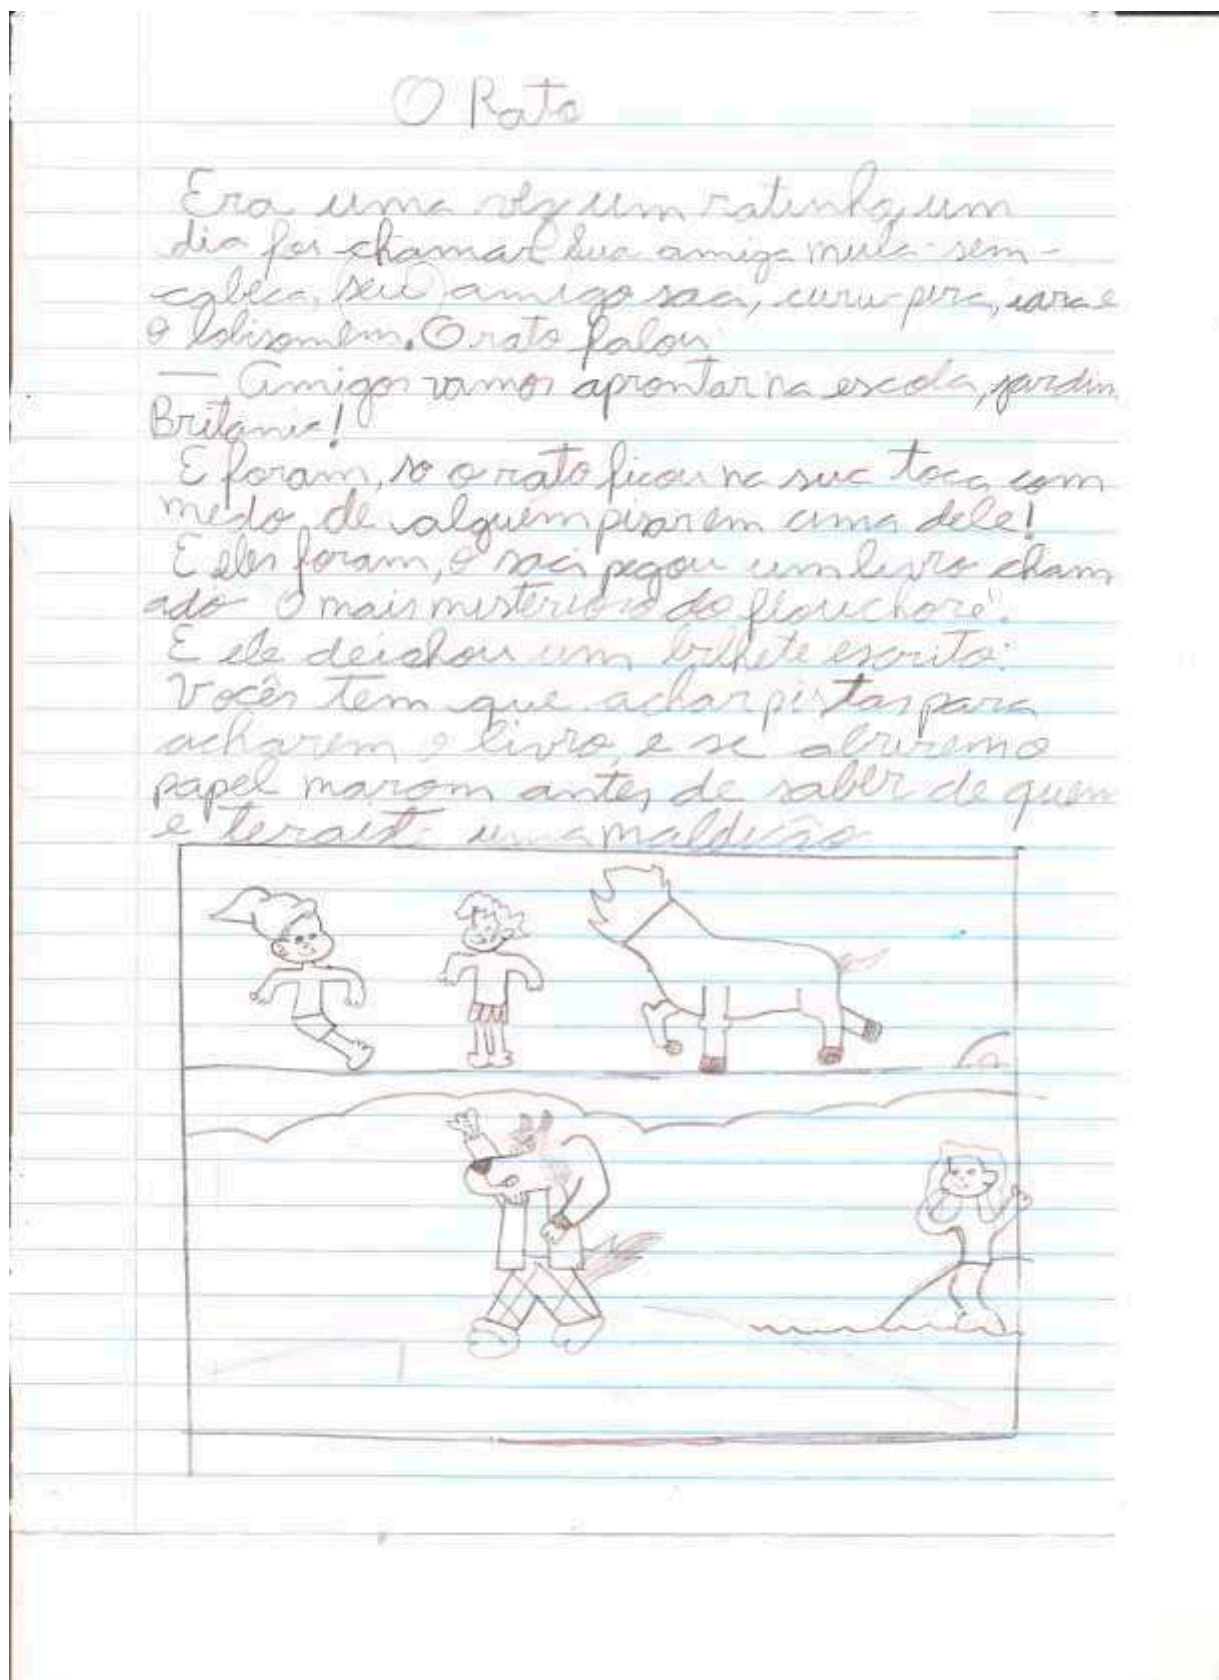 O Rato
Era uma vez um ratinho, um
dia foi chamar sua amiga mula-sem-
cabeca, (seu) amigo saci, curu-pira, iara e
o lobisomem. O rato falou:
— Amigos vamos aprontar na escola, jardim
Britania!
E foram, so o rato ficou na sua toca com
medo de alguem pisarem cima dele!
E eles foram, o saci pegou um livro cham
ado "O mais misterioso do flouchore".
E ele deichou um bilhete escrito:
Vocês tem que achar pistas para
acharem o livro, e se abrirem o
papel marom antes de saber de quem
e uma maldicão